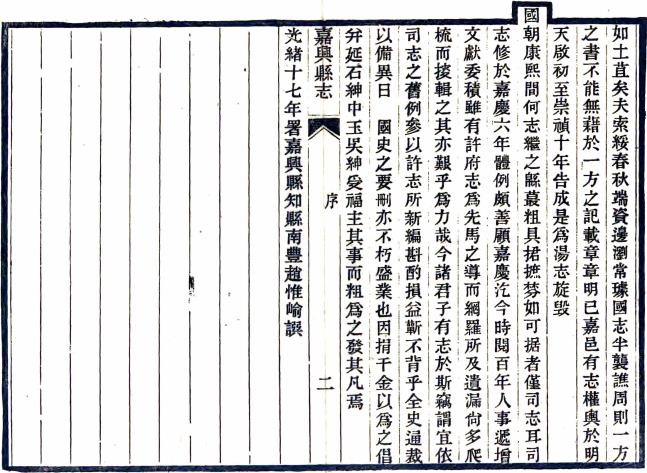 如土苴矣夫索綏春秋端資邊瀏常璩國志半襲譙周則一方
之書不能無藉於一方之記載章章明已嘉邑有志權輿於明
天啟初至崇禎十年告成是為湯志旋毀
國朝康熙間何志繼之緜蕞粗具捃摭棼如可据者僅司志耳司
志修於嘉慶六年體例頗善顧嘉慶迄今時閱百年人事遞增
文獻委積雖有許府志為先馬之導而網羅所及遺漏尚多爬
梳而掇輯之其亦艱乎為力哉今諸君子有志於斯竊謂宜依
司志之舊例參以許志所新編斟酌損益靳不背乎全史通裁
以備異日　國史之要刪亦不朽盛業也因捐千金以為之倡
弁延石紳中玉吳紳受福主其事而粗為之發其凡焉
嘉興縣志
序
二
光緒十七年署嘉興縣知縣南豐趙惟崳譔